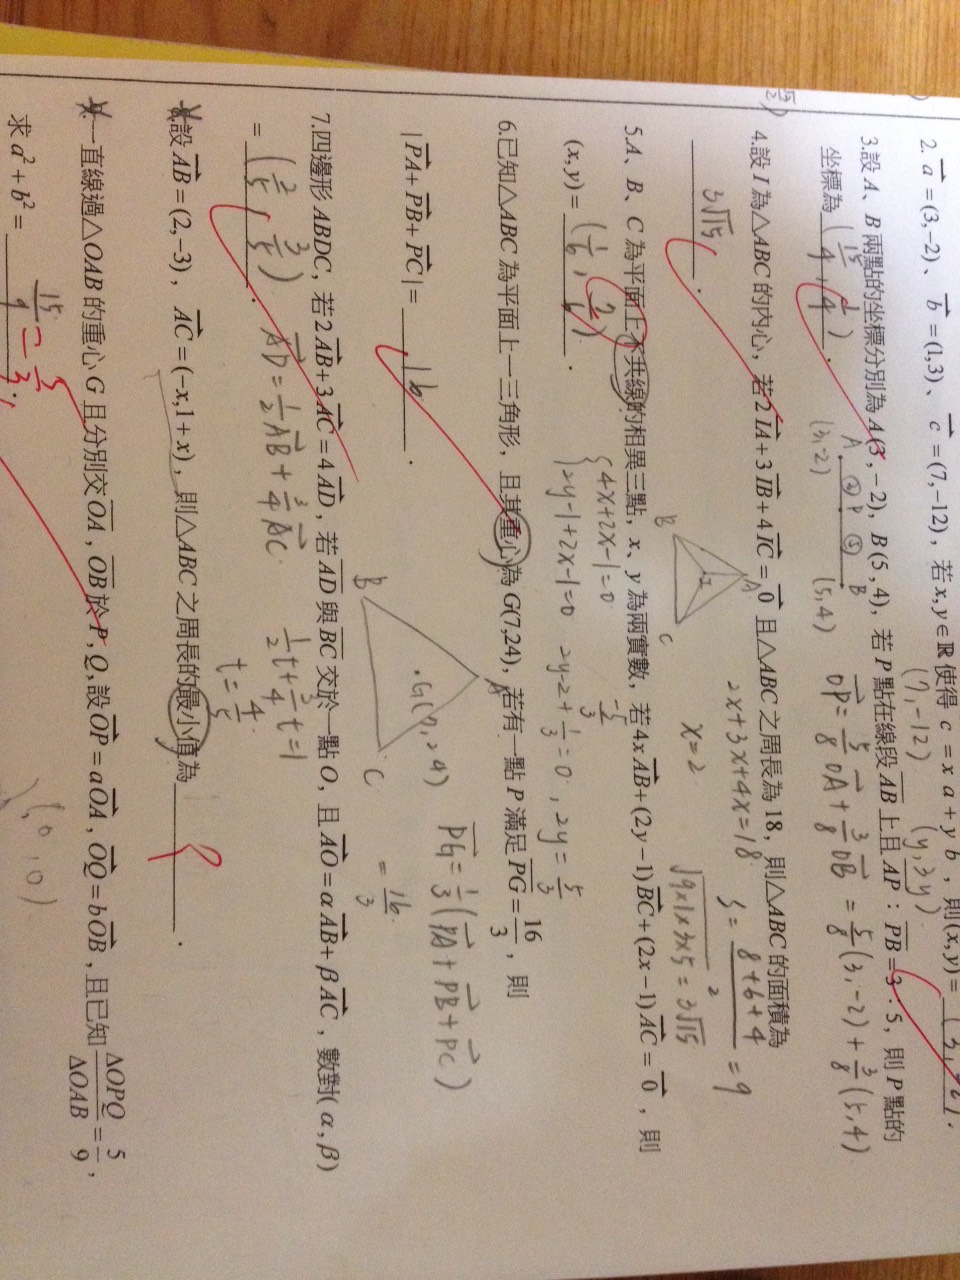 2. a = (3, -2)、 b = (1,3)、 c = (7,-12), 若 x, y ∈ ℝ 使得 c = x a + y b, 則 (x, y) =
(7, -12) (y, 3y)
3.設 A、B 兩點的坐標分別為 A(3, -2), B(5, 4), 若 P 點在線段 AB 上且 AP : PB = 3 : 5, 則 P 點的
坐標為 (15/4, 1/4).
A P B
(3,-2) (5,4)
OP = 5/8 OA + 3/8 OB = 5/8 (3,-2) + 3/8 (5,4)
4.設 I 為△ABC 的內心, 若 2 IA + 3 IB + 4 IC = 0 且△ABC 之周長為 18, 則△ABC 的面積為
3√15.
B I A C
2x+3x+4x=18
x=2
s = (8+6+4)/2 = 9
√(9×1×3×5) = 3√15
5.A、B、C 為平面上不共線的相異三點, x、y 為兩實數, 若 4x AB + (2y-1) BC + (2x-1) AC = 0, 則
(x, y) =
{ 4x+2x-1=0
2y-1+2x-1=0 2y-2+1/3=0, 2y=5/3
6.已知△ABC 為平面上一三角形, 且其重心為 G(7,24), 若有一點 P 滿足 PG = 16/3, 則
| PA + PB + PC | = 16.
A B C
G(7,24)
PG = 1/3 (PA + PB + PC)
= 16/3
7.四邊形 ABDC, 若 2 AB + 3 AC = 4 AD, 若 AD 與 BC 交於一點 O, 且 AO = α AB + β AC, 數對(α, β)
= (2/5, 3/5).
AD = 1/2 AB + 3/4 AC
1/2 t + 3/4 t = 1
t = 4/5
設 AB = (2, -3), AC = (-x, 1+x), 則△ABC 之周長的最小值為 .
一直線過△OAB 的重心 G 且分別交 OA, OB 於 P, Q, 設 OP = a OA, OQ = b OB, 且已知 ΔOPQ/ΔOAB = 5/9,
求 a² + b² =